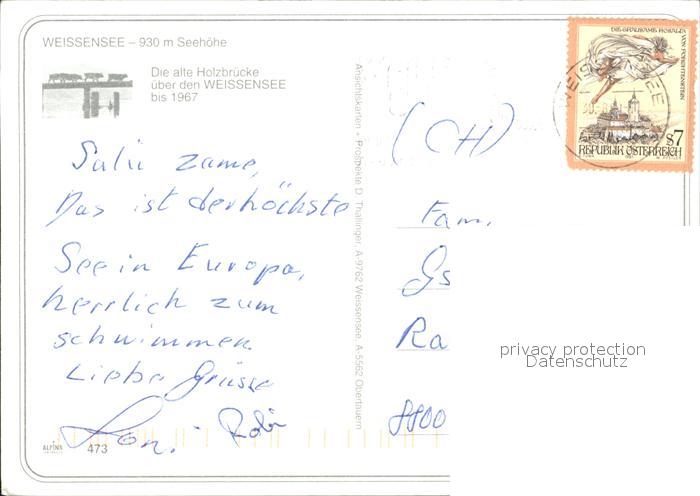 WEISSENSEE – 930 m Seehöhe
Die alte Holzbrücke
über den WEISSENSEE
bis 1967
Salü zame,
Das ist der höchste
See in Europa,
herrlich zum
schwimmen
Liebe Grüsse
Robi
ALPINA
473
Ansichtskarten • Prospekte D. Thallinger, A-9762 Weissensee, A-5562 Obertauern
DIE GRAUSAME ROSALIA VON FORCHTENSTEIN
S7
REPUBLIK ÖSTERREICH
WEISSENSEE
(CH)
Fam.
Gs
Ra
8800
privacy protection
Datenschutz